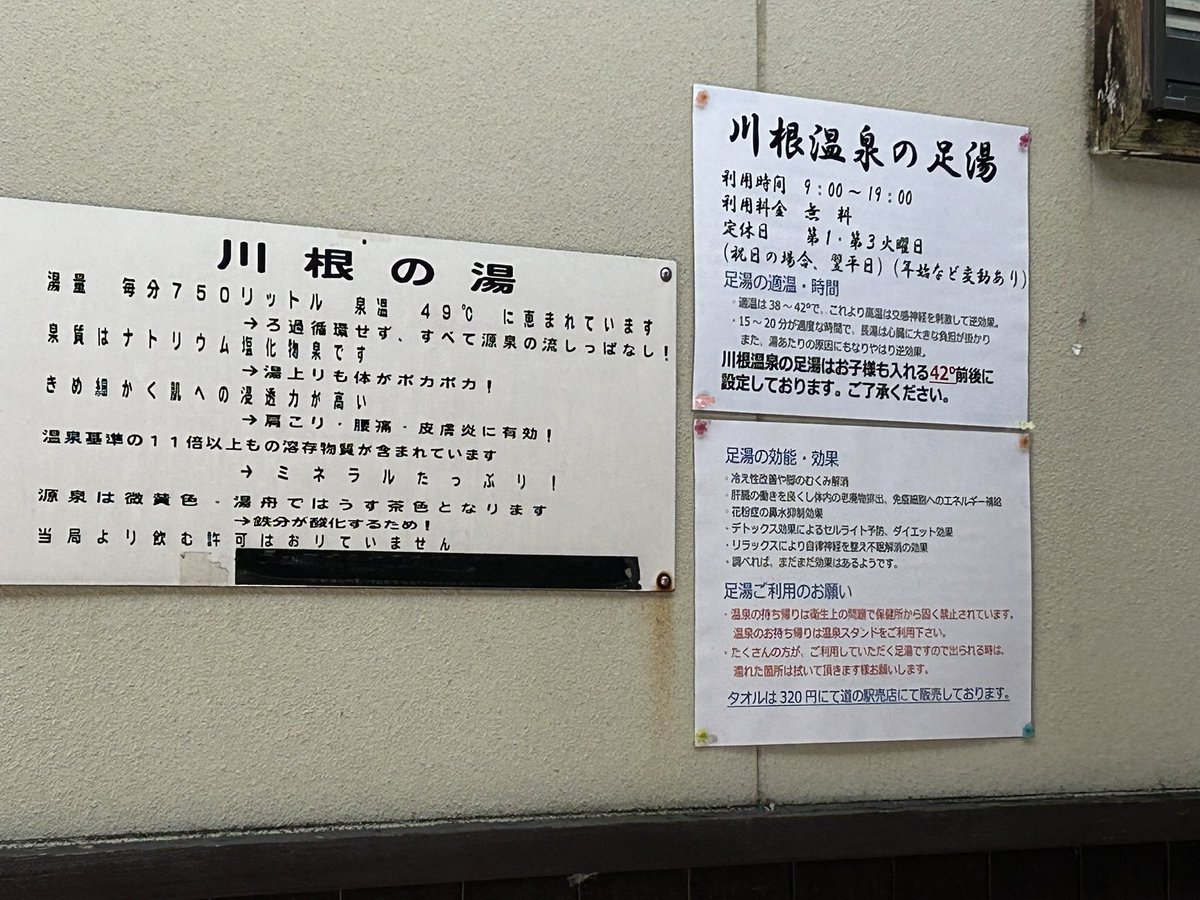 川根の湯
湯量　毎分７５０リットル　泉温　４９℃　に恵まれています
→ろ過循環せず、すべて源泉の流しっぱなし！
泉質はナトリウム塩化物泉です
→湯上りも体がポカポカ！
きめ細かく肌への浸透力が高い
→肩こり・腰痛・皮膚炎に有効！
温泉基準の１１倍以上もの溶存物質が含まれています
→ミネラルたっぷり！
源泉は微黄色・湯舟ではうす茶色となります
→鉄分が酸化するため！
当局より飲む許可はおりていません
川根温泉の足湯
利用時間　9：00～19：00
利用料金　無　料
定休日　第1・第3火曜日
(祝日の場合、翌平日)（年始など変動あり)
足湯の適温・時間
・適温は38～42°で、これより高温は交感神経を刺激して逆効果。
・15～20分が適度な時間で、長湯は心臓に大きな負担が掛かり
また、湯あたりの原因にもなりやはり逆効果。
川根温泉の足湯はお子様も入れる42°前後に
設定しております。ご了承ください。
足湯の効能・効果
・冷え性改善や脚のむくみ解消
・肝臓の働きを良くし体内の老廃物排出、免疫細胞へのエネルギー補給
・花粉症の鼻水抑制効果
・デトックス効果によるセルライト予防、ダイエット効果
・リラックスにより自律神経を整え不眠解消の効果
・調べれば、まだまだ効果はあるようです。
足湯ご利用のお願い
・温泉の持ち帰りは衛生上の問題で保健所から固く禁止されています。
温泉のお持ち帰りは温泉スタンドをご利用下さい。
・たくさんの方が、ご利用していただく足湯ですので出られる時は、
濡れた箇所は拭いて頂きます様お願いします。
タオルは320円にて道の駅売店にて販売しております。